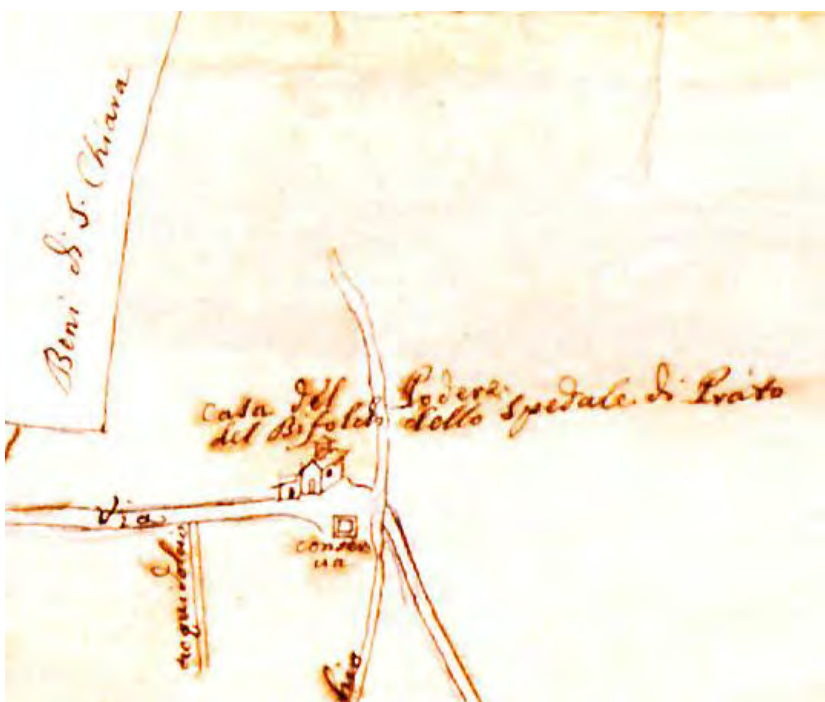 Beni di S. Chiara
Casa del Podere
del Bifolcho dello Spedale di Prato
Via
conser
va